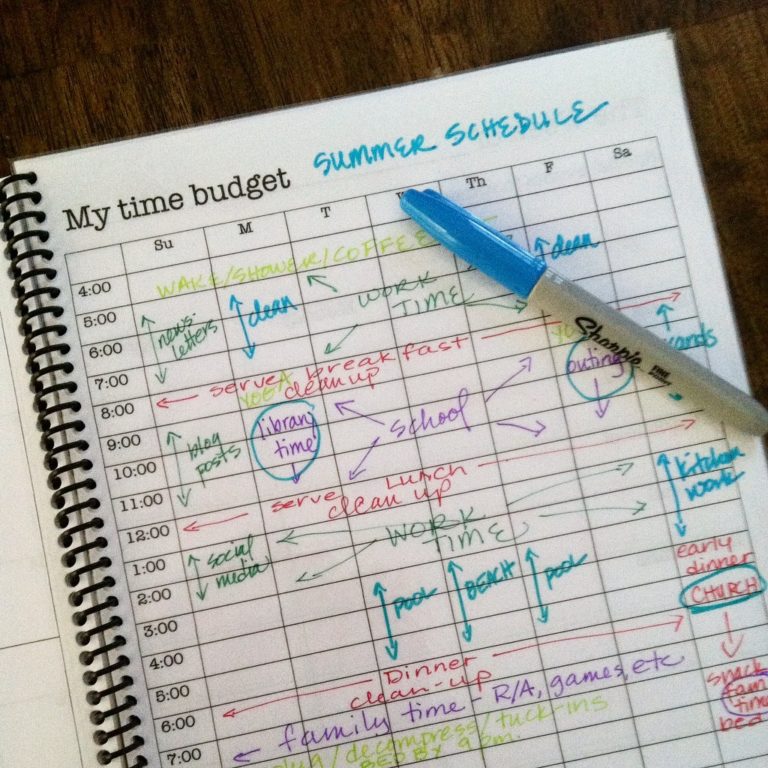 SUMMER SCHEDULE
My time budget
Su M T Th F Sa
4:00
WAKE/SHOWER/COFFEE
clean
5:00
news-
letters
clean
WORK
TIME
6:00
7:00
serve breakfast
clean up
YOGA
Sharpie
8:00
outing
library
time
school
9:00
blog
posts
10:00
11:00
serve Lunch
clean up
kitchen
work
12:00
WORK
TIME
1:00
social
media
early
dinner
2:00
pool
BEACH
pool
CHURCH
3:00
4:00
Dinner
clean-up
5:00
snack
fam
time
bed
6:00
family time - R/A, games, etc
7:00
/decompress/tuck-ins
BED BY 9 pm.